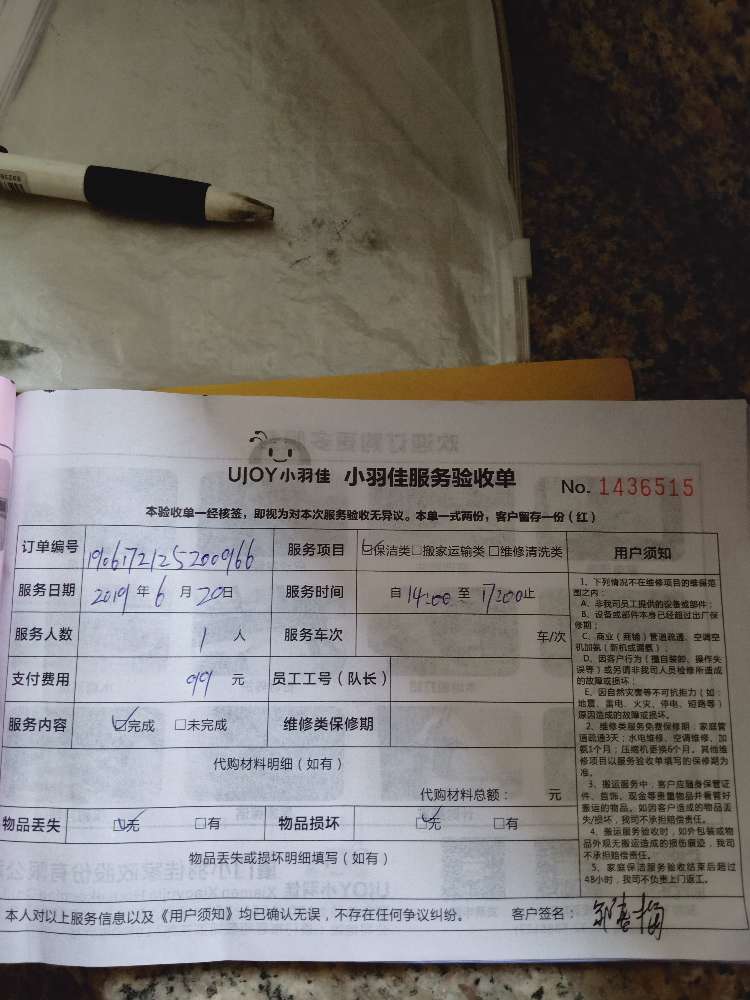 欢迎订购更多服
UJOY小羽佳 小羽佳服务验收单 No. 1436515
本验收单一经核签，即视为对本次服务验收无异议。本单一式两份，客户留存一份（红）
订单编号 1906172125200966 服务项目 ☑保洁类□搬家运输类□维修清洗类
服务日期 2019年6月20日 服务时间 自14:00至17:00止
服务人数 1人 服务车次 车/次
支付费用 99元 员工工号（队长）
服务内容 ☑完成 □未完成 维修类保修期
代购材料明细（如有）
代购材料总额： 元
物品丢失 ☑无 □有 物品损坏 ☑无 □有
物品丢失或损坏明细填写（如有）
本人对以上服务信息以及《用户须知》均已确认无误，不存在任何争议纠纷。 客户签名：
用户须知
1、下列情况不在维修项目的维保范
围之内：
A、非我司员工提供的设备或部件；
B、设备或部件本身已经超过出厂保
修期；
C、商业（商铺）管道疏通、空调空
机加氨（新机或漏氨）；
D、因客户行为（擅自装卸、操作失
误等）或另请非我司人员检修所造成
的故障或损坏；
E、因自然灾害等不可抗力（如：
地震、雷电、火灾、停电、短路等）
原因造成的故障或损坏。
2、维修类服务免费保修期：家庭管
道疏通3天；水电维修、空调维修、加
氨1个月；压缩机更换6个月。其他维
修项目以服务验收单填写的保修期为
准。
3、搬运服务中，客户应随身保管证
件、首饰、现金等贵重物品并看管好
搬运的物品。如因客户造成的物品丢
失/损坏，我司不承担赔偿责任。
4、搬运服务验收时，如外包装或物
品外观无搬运造成的损伤痕迹，我司
不承担赔偿责任。
5、家庭保洁服务验收结束后超过
48小时，我司不负责上门返工。